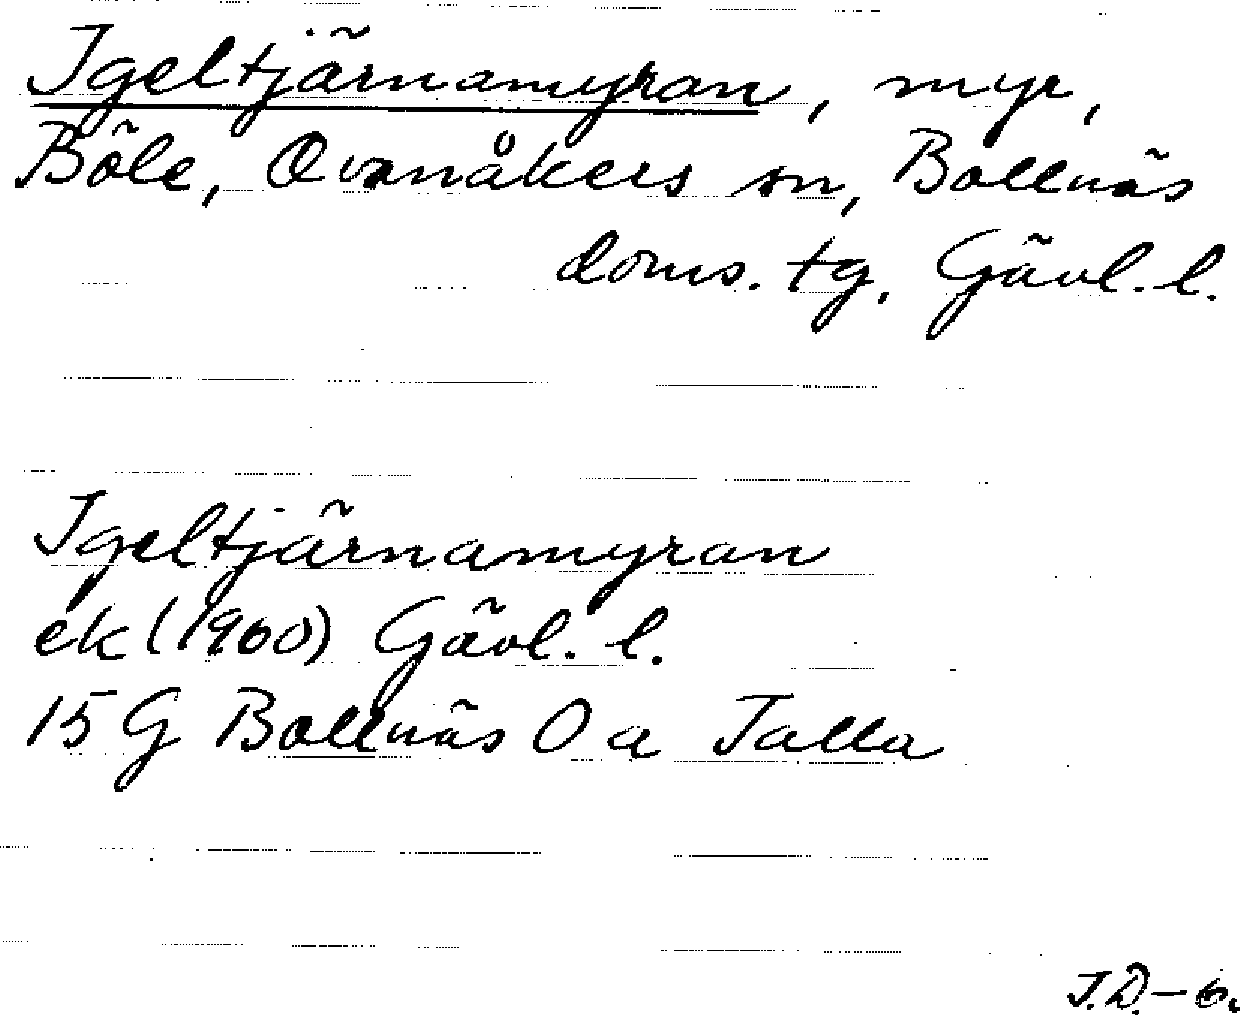 Igeltjärnamyran, myr,
Böle, Ovanåkers sn, Bollnäs
doms. tg, Gävl. l.
Igeltjärnamyran
ek (1960) Gävl. l.
15 G Bollnäs O a Talla
J.D.-6